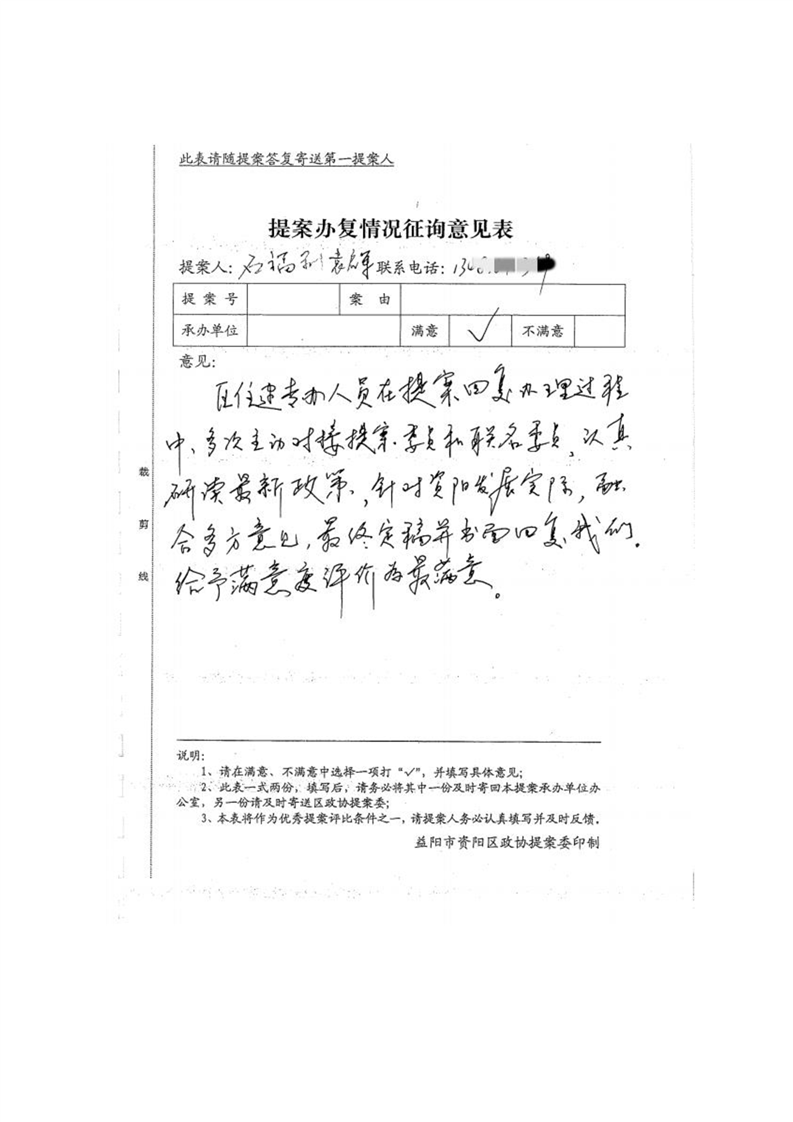 此表请随提案答复寄送第一提案人
提案办复情况征询意见表
提案人：石福利 袁辉 联系电话：134
提案号 案由
承办单位 满意 ✓ 不满意
意见：
区住建专办人员在提案回复办理过程
中，多次主动对接提案委员和联名委员，认真
研读最新政策，针对资阳发展实际，融
合多方意见，最终定稿并书面回复我们。
给予满意度评价为最满意。
裁
剪
线
说明：
1、请在满意、不满意中选择一项打“✓”，并填写具体意见；
2、此表一式两份，填写后，请务必将其中一份及时寄回本提案承办单位办
公室，另一份请及时寄送区政协提案委；
3、本表将作为优秀提案评比条件之一，请提案人务必认真填写并及时反馈。
益阳市资阳区政协提案委印制